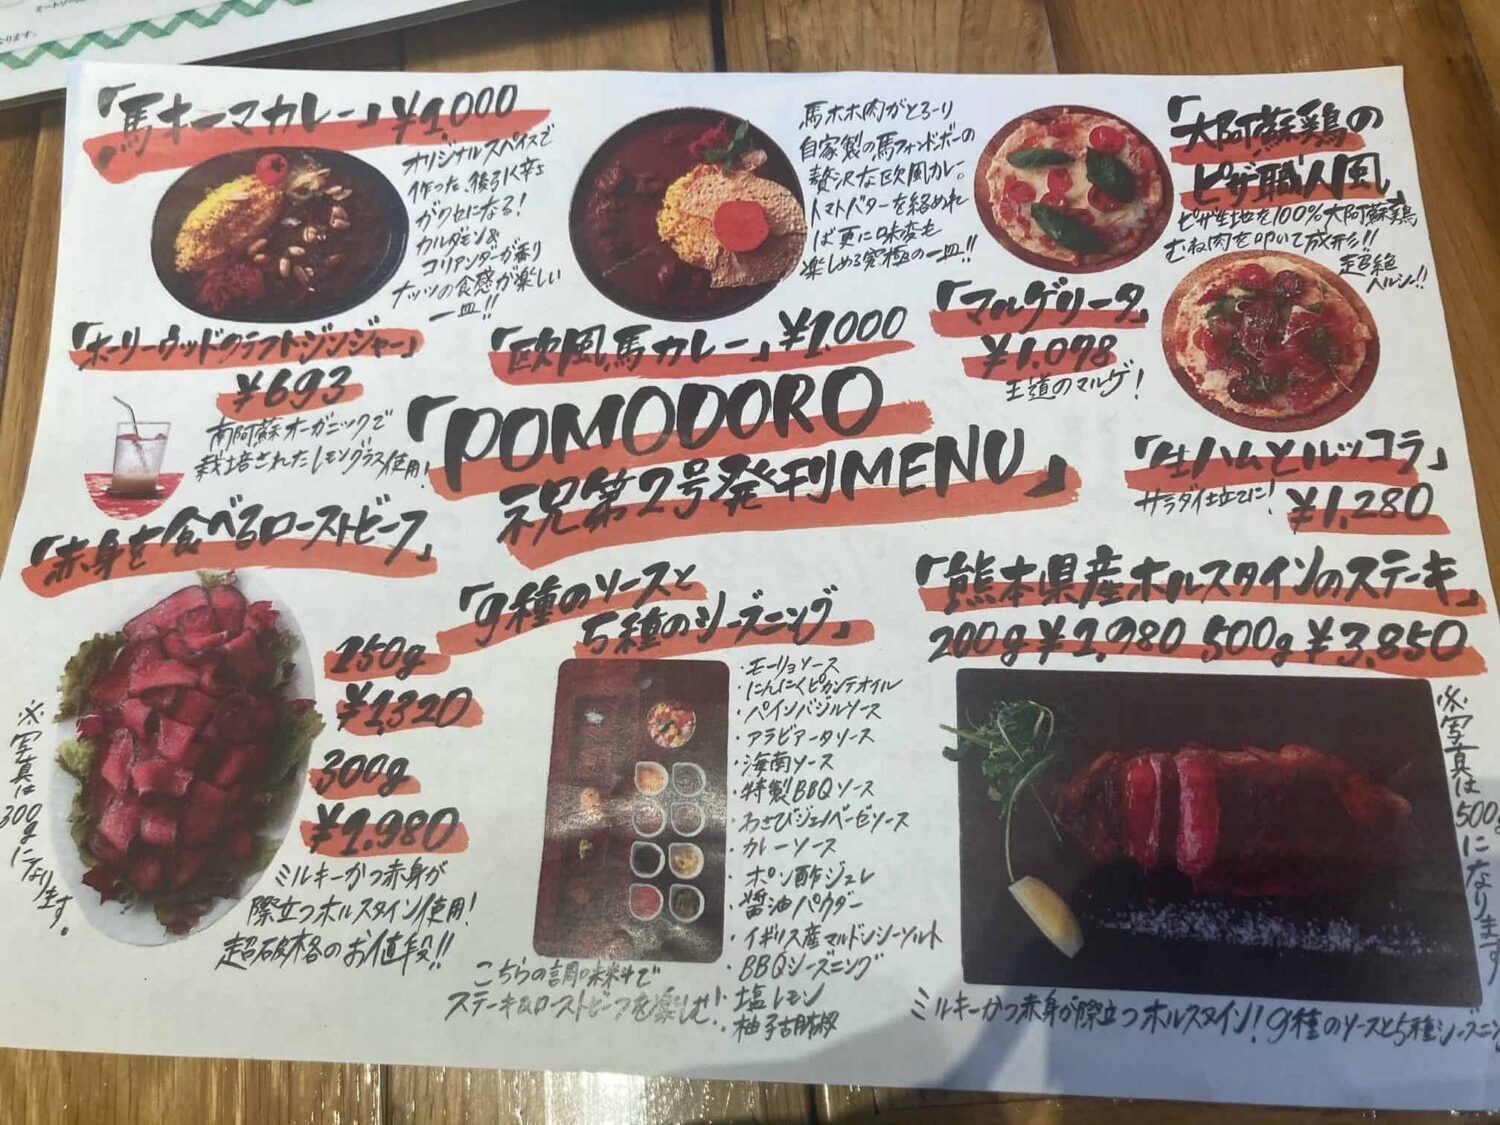 「馬キーマカレー」¥1.000
オリジナルスパイスで
作った、後引く辛さ
がクセになる!
カルダモン&
コリアンダーが香り
ナッツの食感が楽しい
一皿!!
馬ホホ肉がとろーり
自家製の馬フォンドボーの
贅沢な欧風カレー。
トマトバターを絡めれ
ば更に味変も
楽しめる究極の一皿!!
「欧風馬カレー」¥1.000
「大阿蘇鶏の
ピザ職人風」
ピザ生地を100%大阿蘇鶏
むね肉を叩いて成形!!
超絶
ヘルシー!!
「マルゲリータ」
¥1.078
王道のマルゲ!
「生ハムとルッコラ」
サラダ仕立てに! ¥1,280
「ホーリーウッドクラフトジンジャー」
¥693
南阿蘇オーガニックで
栽培されたレモングラス使用!
「POMODORO
祝第2号発刊MENU」
「赤身を食べるローストビーフ」
150g
¥1,320
300g
¥1.980
※写真は
300gになります。
ミルキーかつ赤身が
際立つホルスタイン使用!
超破格のお値段!!
「9種のソースと
5種のシーズニング」
・エーリョソース
・にんにくピカンテオイル
・ペインバジルソース
・アラビアータソース
・海南ソース
・特製BBQソース
・わさびジェノベーゼソース
・カレーソース
・ポン酢ジュレ
・醤油パウダー
・イギリス産マルドンシーソルト
・BBQシーズニング
・塩レモン
・柚子胡椒
こちらの調味料で
ステーキ&ローストビーフを楽しむ!
「熊本県産ホルスタインのステーキ」
200g ¥1,980 500g ¥3,850
※写真は500gになります
ミルキーかつ赤身が際立つホルスタイン! 9種のソースと5種シーズニン